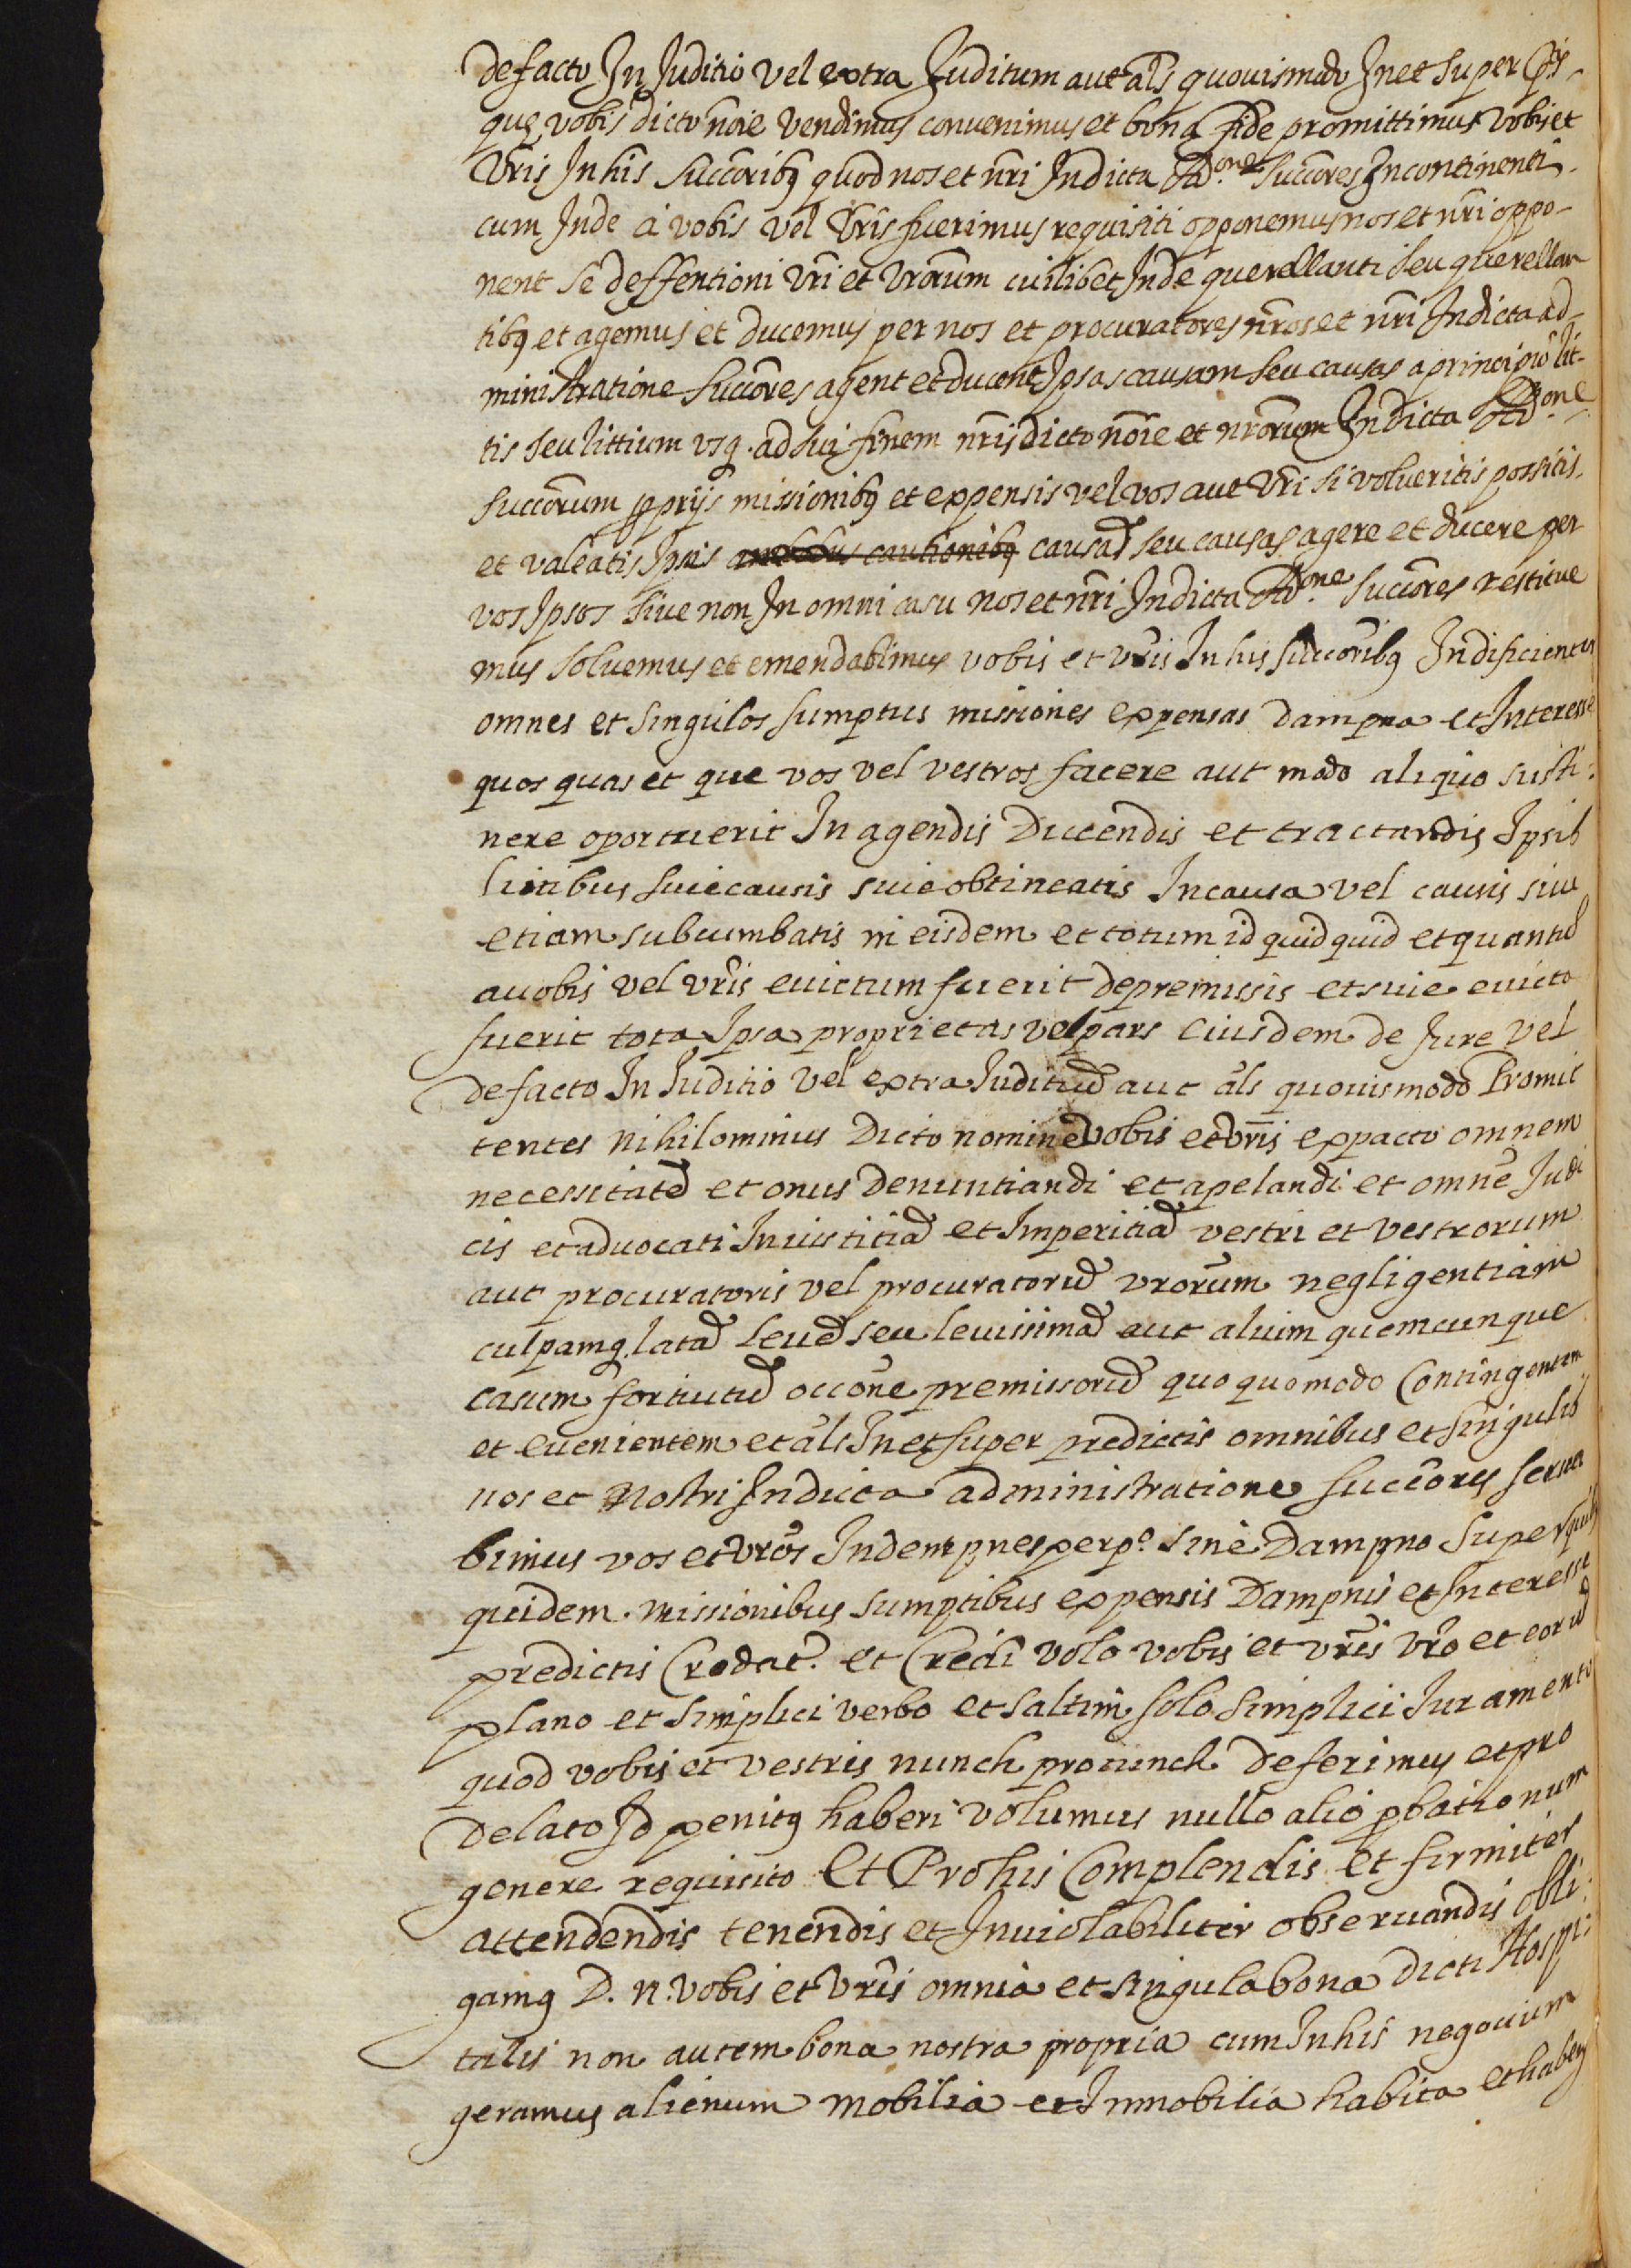 de facto In Juditio vel extra Juditium aut als̃ quouismodo In et super p̃tis
que vobis dicto noĩe vendimus conuenimus et bona fide promittimus vobis et
vr̃is In his succõribꝰ quod nos et nr̃i In dicta Ad.one succõres Incontinenti
cum Inde à vobis vel vr̃is fuerimus requisiti opponemus nos et nr̃i oppo-
nent se deffentioni vr̃i et vrõrum cuilibet Inde querellanti seu querellan
tibꝰ et agemus et ducemus per nos et procuratores nr̃os et nr̃i In dicta ad-
ministratione succõres agent et ducent Ipsas causam seu causas a principio lit-
tis seu littium vsq. ad sui finem nr̃is dicto nõie et nrõrum In dicta Ad.one
succõrum ꝓprijs missionibꝰ et expensis vel vos aut vr̃i si volueritis possitis
et valeatis Ipsis causam̃ seu causas agere et ducere per
vos Ipsos siue non In omni casu nos et nr̃i In dicta Ad.one succõres restitue
mus soluemus et emendabimus vobis et vr̃is In his succõribꝰ Indificienter
omnes et singulos sumptus missiones expensas dampna et Interesse
quos quas et que vos vel vestros facere aut modo aliquo susti-
nere oportuerit In agendis Ducendis et tractandis Ipsis
litibus suie causis suie obtineatis In causa vel causis siue
etiam subcumbatis in eisdem et totum id quidquid et quantũ
a vobis vel vr̃is euictum fuerit de premissis et suie euicta
fuerit tota Ipsa proprietas vel pars eiusdem de Jure vel
de facto In Juditio vel extra Juditiũ aut als̃ quouismodo Promit
tentes nihilominus Dicto nomine vobis et vr̃is ex pacto omnem
necessitatẽ et onus denuntiandi et apelandi et omnẽ Judi
cis et aduocati Iniustitiã et Imperitiã vestri et vestrorum
aut procuratoris vel procuratorũ vrõrum negligentiam
culpamq. latã leuẽ seu leuissimã aut alium quemcunque
casum fortuitũ occõne premissorũ quoquomodo Contingentem
et euenientem et als̃ In et super predictis omnibus et singulis
nos et Nostri In dicta administratione succõres serua
bimus vos et vrõs Indempnes perp.o sine Dampno super quib̃
quidem missionibus sumptibus expensis Dampnis et Interesse
predictis Credat.r et Credi volo vobis et vr̃is vr̃o et eorũ
plano et simplici verbo et saltim solo simplici Juramento
quod vobis et vestris nunch pro tunch deferimus et pro
delato Id penitꝰ haberi volumus nullo alio ꝓbationum
genere requisito Et Pro his Complendis et firmiter
attendendis tenendis et Inuiolabiliter obseruandis obli-
gamꝰ D. n. vobis et vr̃is omnia et singula bona dicti Hospi-
talis non autem bona nostra propria cum In his negocium
geramus alienum mobilia et Inmobilia habita et habeñ